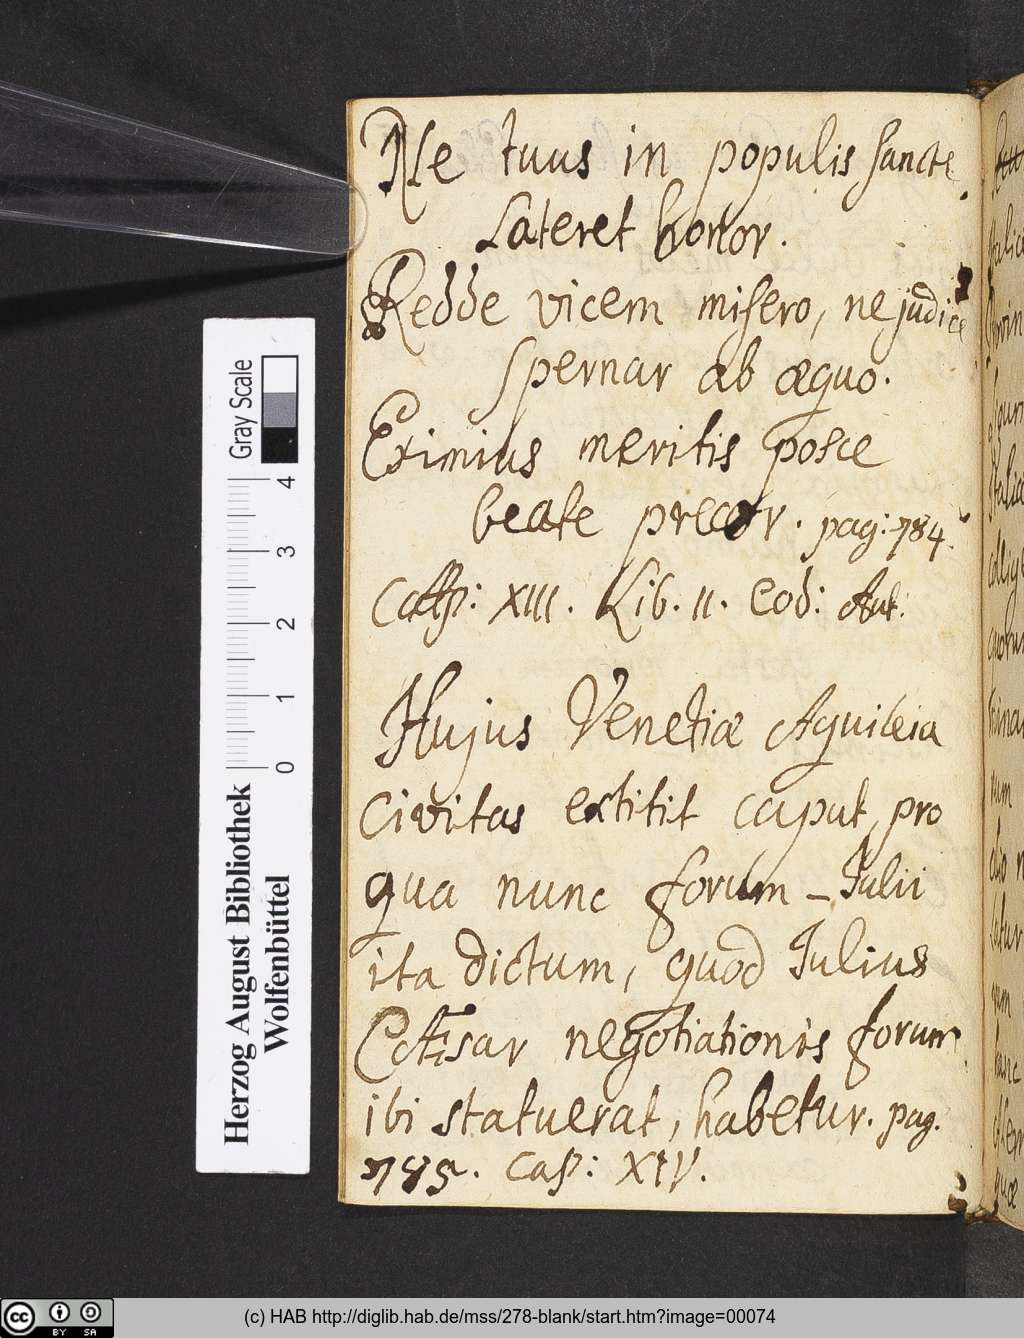 Ne tuus in populis sancte
Lateret honor.
Redde vicem misero, ne judice
spernar ab æquo.
Eximius meritis posce
beate precor. pag: 784.
Cap: XIII. Lib. II. Cod: Aut:
Hujus Venetiæ Aquileia
civitas extitit caput, pro
qua nunc forum - Iulii
ita dictum, quod Iulius
Cæsar negotiationis forum
ibi statuerat, habetur. pag.
785. Cap: XIV.
Gray Scale
4
3
2
1
0
Herzog August Bibliothek
Wolfenbüttel
cc BY SA
(c) HAB http://diglib.hab.de/mss/278-blank/start.htm?image=00074